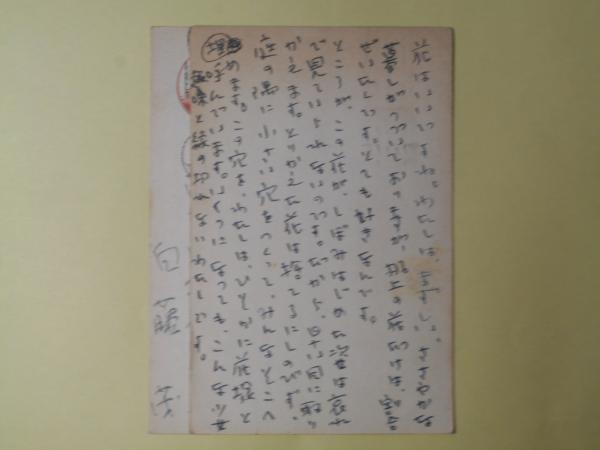 花はいいですね。わたしは、貧しい、ささやかな
暮しがつづいておりますが、机上の花だけは、割合
ぜいたくです。とても好きなんです。
ところが、この花が、しぼみはじめた姿は哀れ
で見ていられないのです。だから、早い目に取り
かえます。とりかえた花は捨てるにしのびず、
庭の隅に小さい穴をつくって、みんなそこへ
埋めます。この穴を、わたしは、ひそかに花塚と
呼んでいます。いくつになっても、こんな少女
趣味と縁の切れないわたしです。